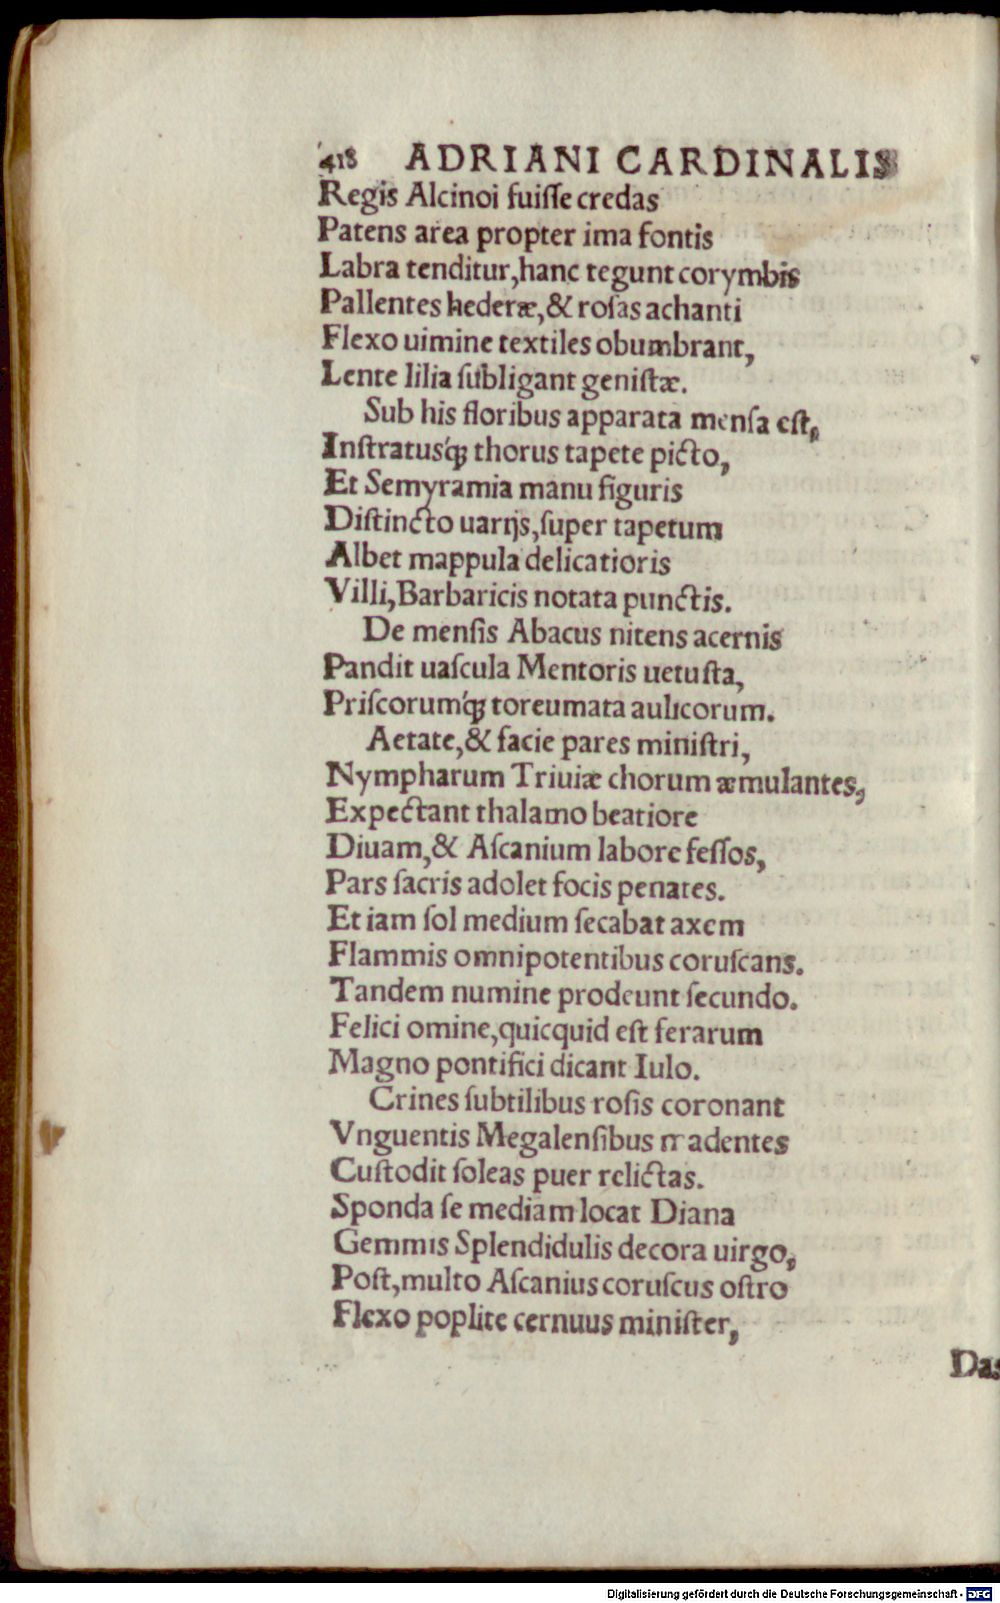 418 ADRIANI CARDINALIS
Regis Alcinoi fuiſſe credas
Patens area propter ima fontis
Labra tenditur,hanc tegunt corymbis
Pallentes hederæ,& roſas achanti
Flexo uimine textiles obumbrant,
Lente lilia ſubligant geniſtæ.
Sub his floribus apparata menſa eſt,
Inſtratusq́; thorus tapete picto,
Et Semyramia manu figuris
Diſtincto uarijs,ſuper tapetum
Albet mappula delicatioris
Villi,Barbaricis notata punctis.
De menſis Abacus nitens acernis
Pandit uaſcula Mentoris uetuſta,
Priſcorumq́; toreumata aulicorum.
Aetate,& facie pares miniſtri,
Nympharum Triuiæ chorum æmulantes,
Expectant thalamo beatiore
Diuam,& Aſcanium labore feſſos,
Pars ſacris adolet focis penates.
Et iam ſol medium ſecabat axem
Flammis omnipotentibus coruſcans.
Tandem numine prodeunt ſecundo.
Felici omine,quicquid eſt ferarum
Magno pontifici dicant Iulo.
Crines ſubtilibus roſis coronant
Vnguentis Megalenſibus madentes
Cuſtodit ſoleas puer relictas.
Sponda ſe mediam locat Diana
Gemmis Splendidulis decora uirgo,
Poſt,multo Aſcanius coruſcus oſtro
Flexo poplite cernuus miniſter,
Das
Digitalisierung gefördert durch die Deutsche Forschungsgemeinschaft - DFG